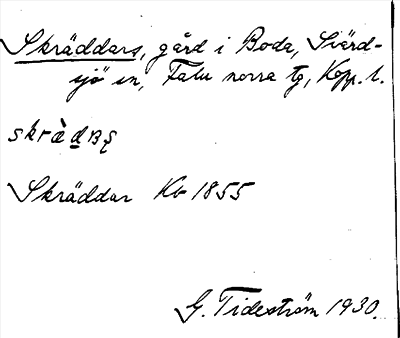 Skräddars, gård i Boda, Svärd-
sjö sn, Falu norra tg, Kopp. l.
Skräddar Kb 1855
G. Tideström 1930.